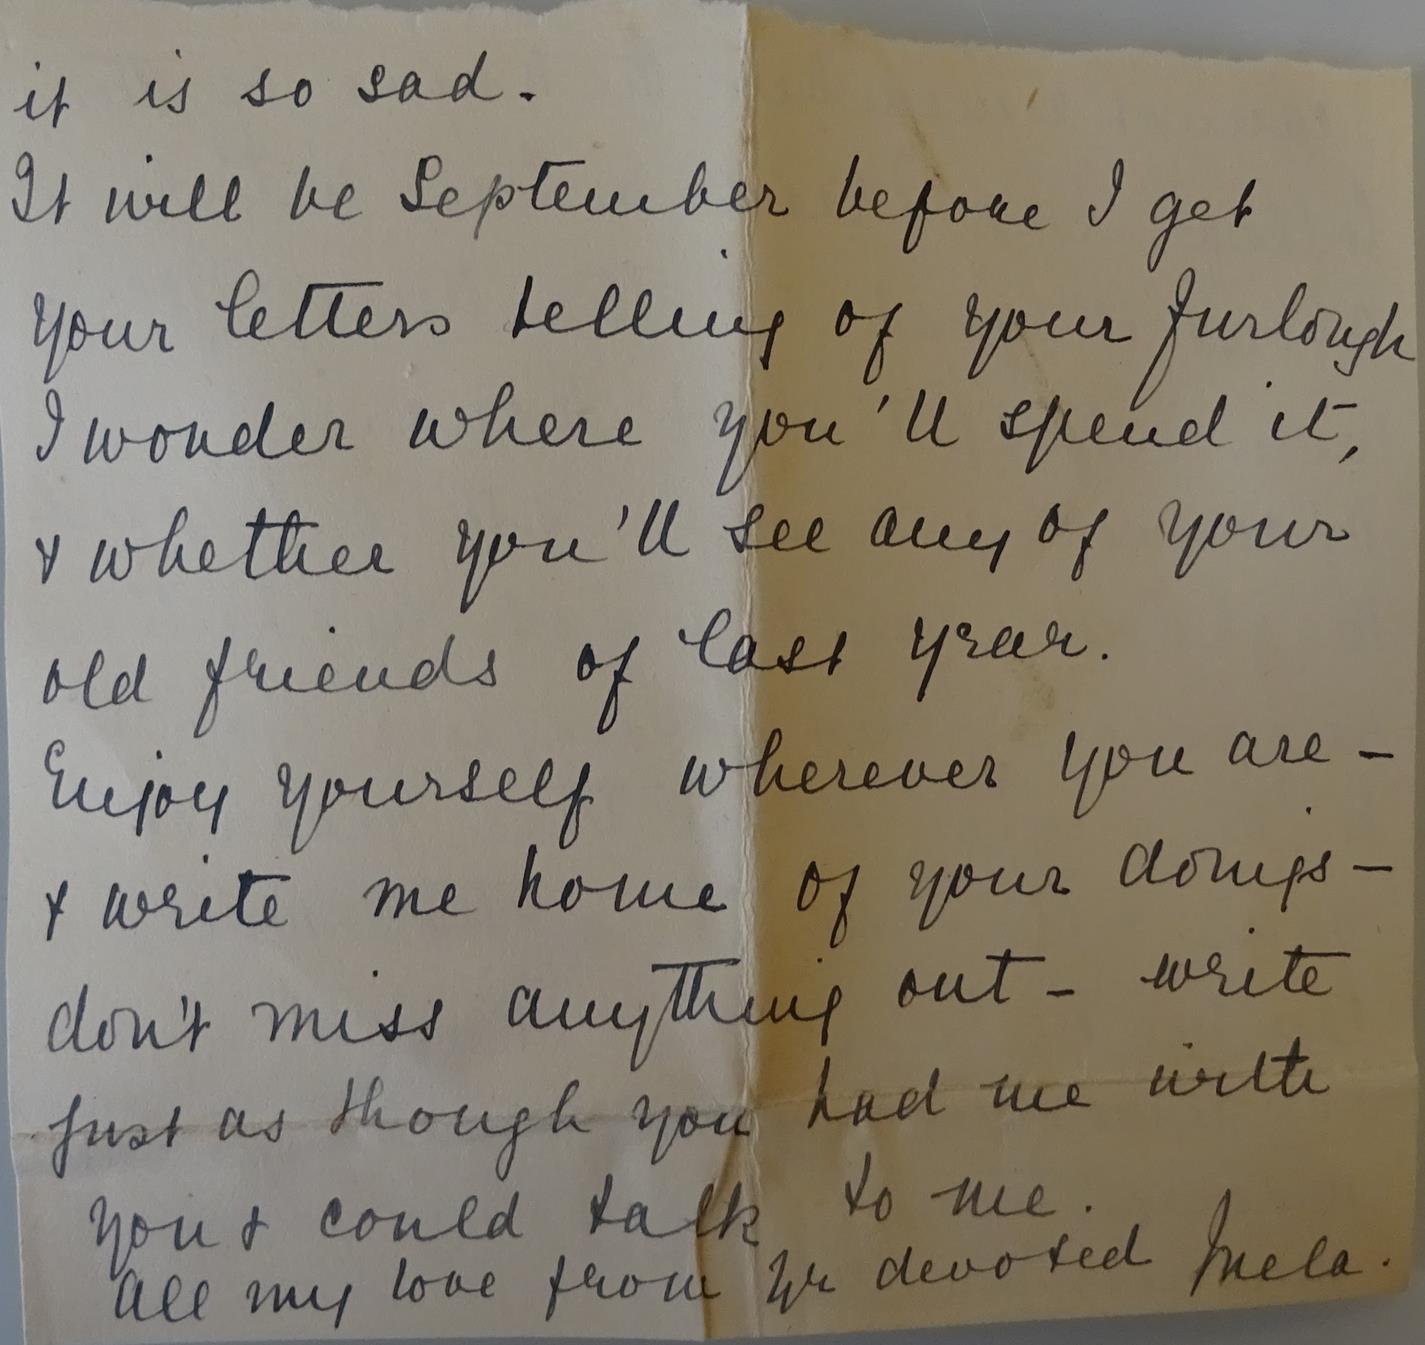 it is so sad.
It will be September before I get
your letters telling of your furlough
I wonder where you'll spend it,
& whether you'll see any of your
old friends of last year.
Enjoy yourself wherever you are –
& write me home of your doings –
don't miss anything out – write
just as though you had me with
you & could talk to me.
All my love from yr devoted